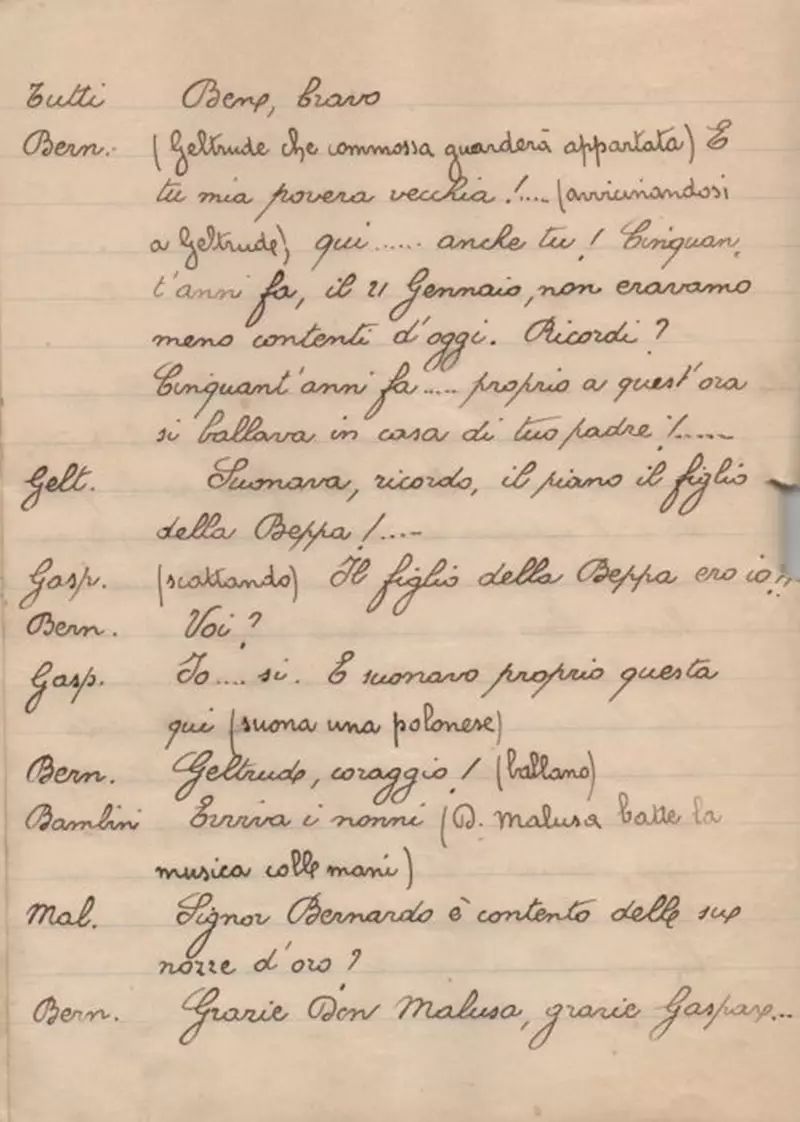 Tutti Bene, bravo
Bern. (Geltrude che commossa guarderà appartata) E
tu mia povera vecchia!.... (avvicinandosi
a Geltrude) qui...... anche tu! Cinquan,
t'anni fa, il 21 Gennaio, non eravamo
meno contenti d'oggi. Ricordi?
Cinquant'anni fa..... proprio a quest'ora
si ballava in casa di tuo padre!.....
Gelt. Suonava, ricordo, il piano il figlio
della Beppa!....
Gasp. (scattando) Il figlio della Beppa ero io!!
Bern. Voi?
Gasp. Io.... si. E suonavo proprio questa
qui (suona una polonese)
Bern. Geltrude, coraggio! (ballano)
Bambini Evviva i nonni (D. Malusa batte la
musica colle mani)
Mal. Signor Bernardo è contento delle sue
nozze d'oro?
Bern. Grazie Don Malusa, grazie Gaspare...